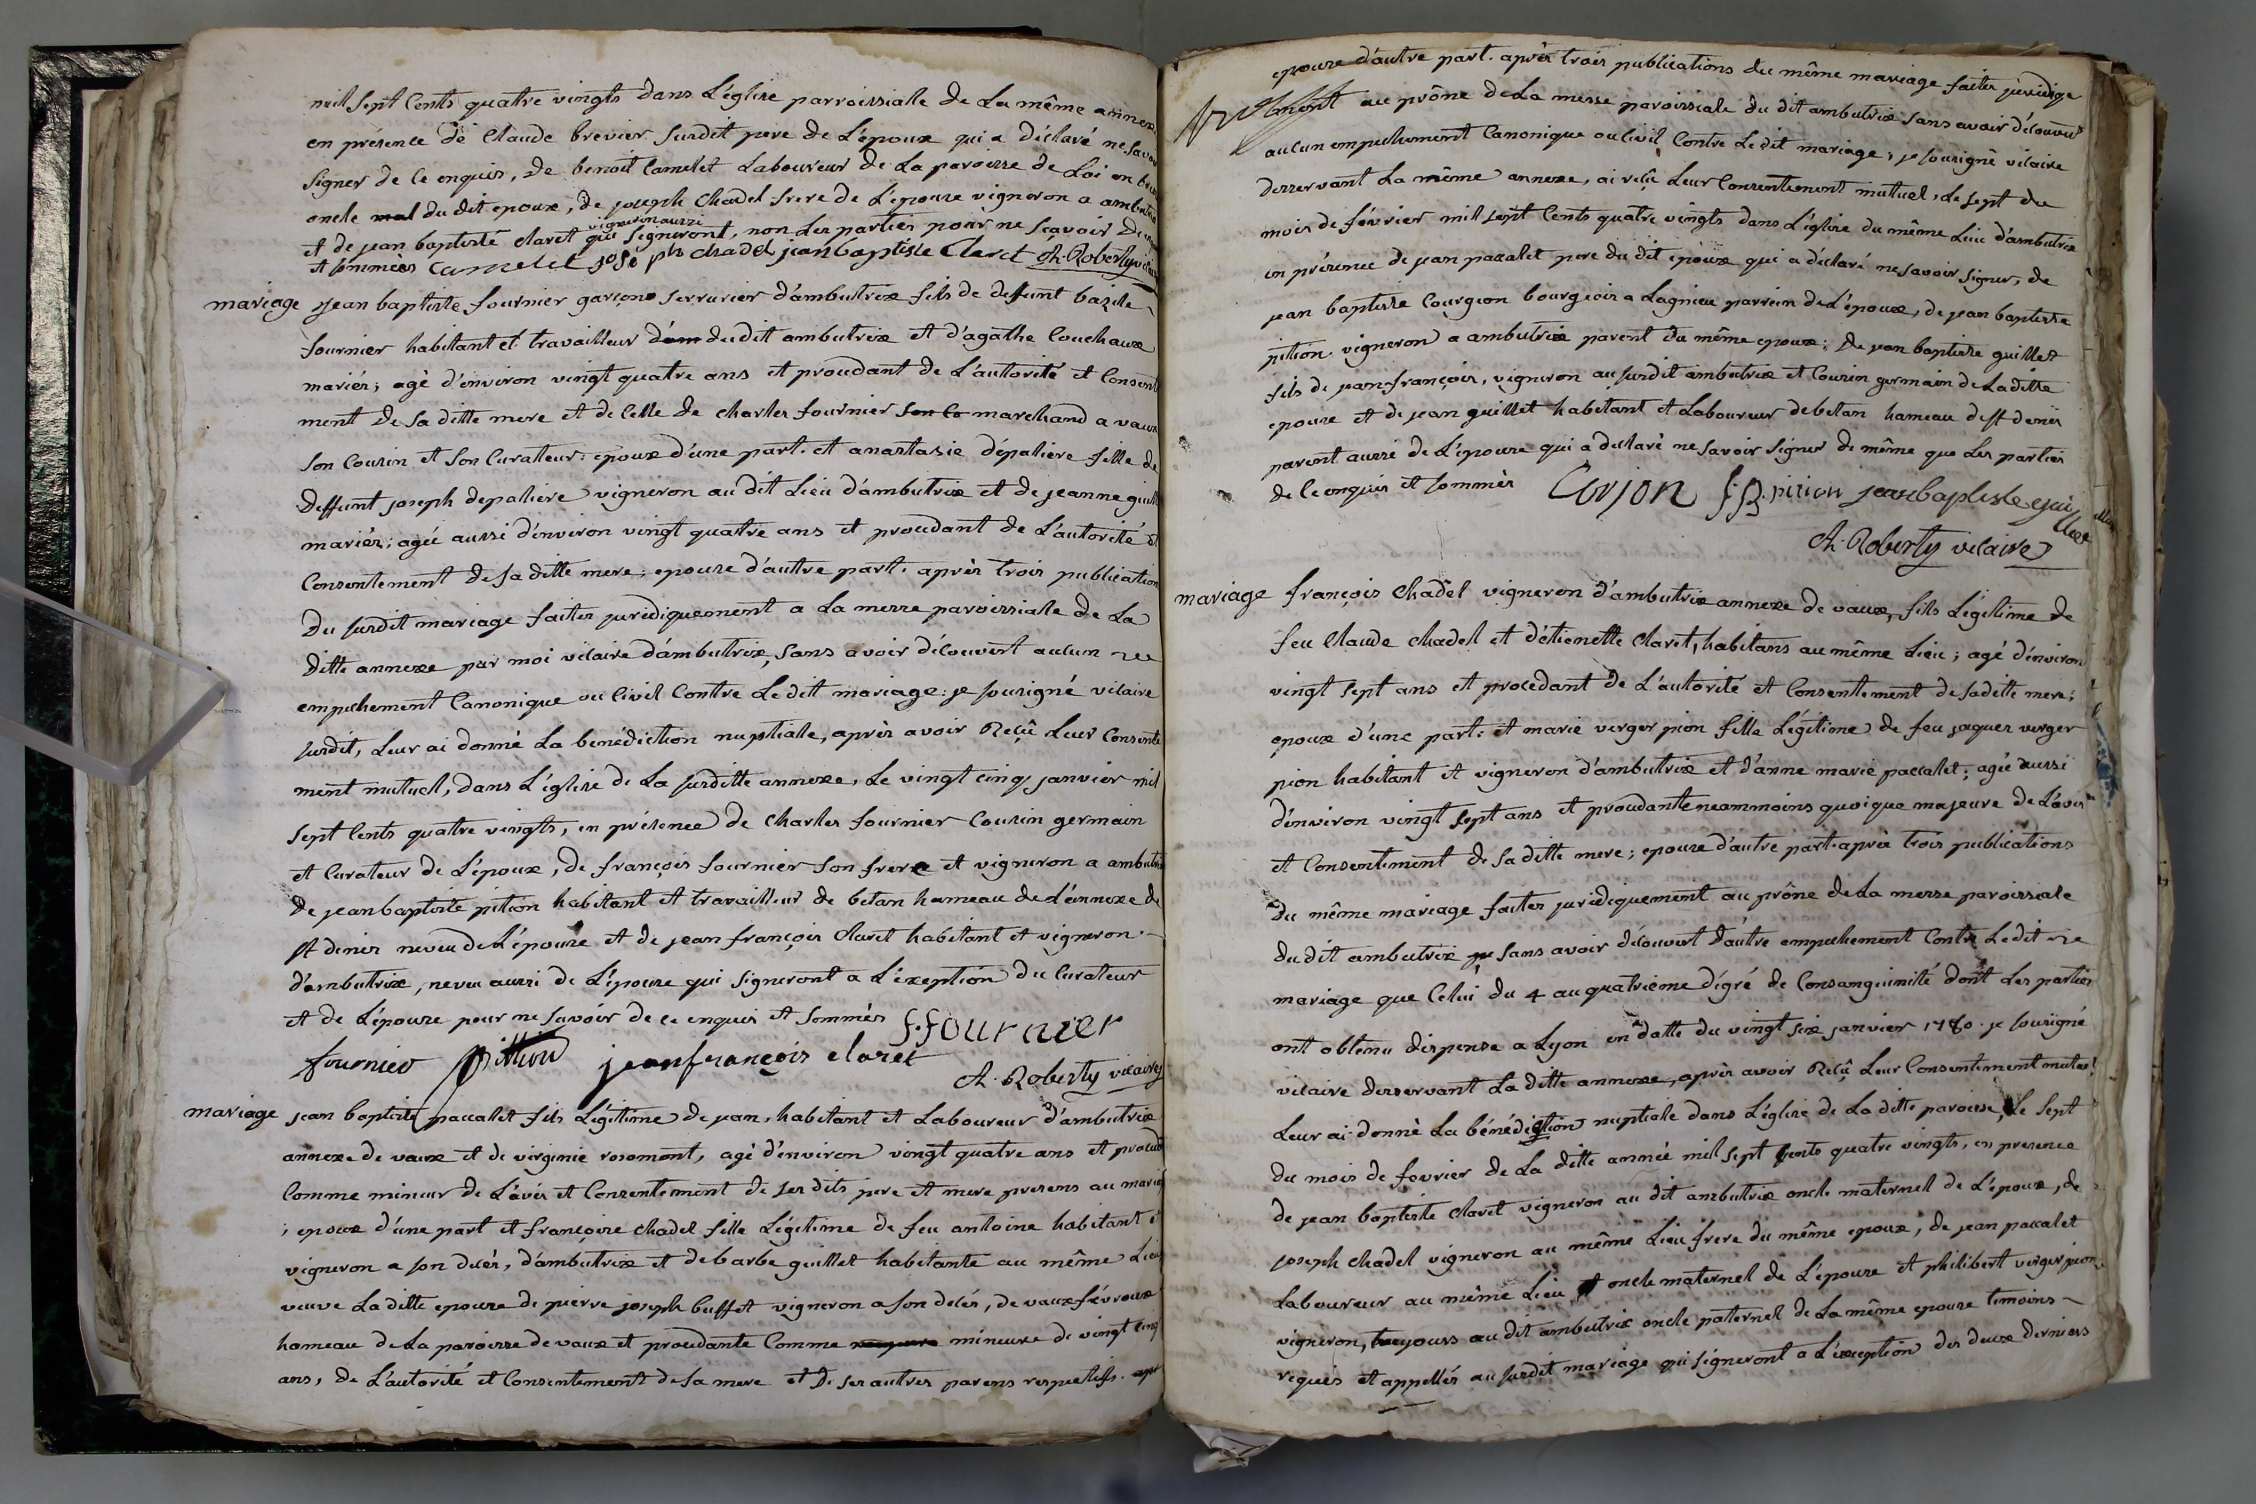 mil sept Cents quatre vingts dans L'église parroissiale de La même annexe
en présence de Claude brevier susdit pere de L'époux qui a déclaré ne savoir
signer de ce enquis, de benoit Camelet Laboureur de La paroisse de Loi en
oncle mal du dit epoux, de joseph Chadel frere de L'épouse vigneron a ambutrix
vigneron aussi
et de jean baptiste claret qui signeront, non Les parties pour ne sçavoir de
et sommées Camelet joseph chadel jean baptiste Claret A. Roberty vicaire
mariage jean baptiste fournier garçon serrurier d'ambutrix fils de deffunt bazile
fournier habitant et travailleur d'am dudit ambutrix et d'agathe Couchaux
mariés; agé d'environ vingt quatre ans et procedant de L'autorité et Consente
ment de sa ditte mere et de Celle de charles fournier son Co marchand a vaux
son Cousin et son Curateur: epoux d'une part. et anastasie dépaliere fille de
deffunt joseph depaliere vigneron au dit Lieu d'ambutrix et de jeanne guillet
mariés; agée aussi d'environ vingt quatre ans et procedant de L'autorité et
Consentement de sa ditte mere; epouse d'autre part. après trois publications
du susdit mariage faites juridiquement a La messe paroissiale de La
ditte annexe par moi vicaire d'ambutrix, sans avoir découvert aucun
empechement Canonique ou Civil Contre Le dit mariage: je sousigné vicaire
susdit, Leur ai donné La bénédiction nuptialle, après avoir Reçû Leur Consente
ment mutuel, dans L'église de La susditte annexe, Le vingt cinq janvier mil
sept Cents quatre vingts, en présence de Charles fournier Cousin germain
et Curateur de L'époux, de françois fournier son frere et vigneron a ambutrix
de jean baptiste pition habitant et travailleur de betan hameau de L'annexe de
st denis neveu de L'épouse et de jean françois Claret habitant et vigneron
d'ambutrix, neveu aussi de L'épouse qui signeront a L'exeption du Curateur
et de L'épouse pour ne savoir de ce enquis et sommés f. fournier
fournier pittion jeanfrançois claret
A. Roberty vicaire
mariage jean baptiste paccalet fils Légitime de jean, habitant et Laboureur d'ambutrix
annexe de vaux et de virginie rosomont, agé d'environ vingt quatre ans et procedant
Comme mineur de L'avis et Consentement de ses dits pere et mere presens au mariage
; epoux d'une part et françoise chadel fille Légitime de feu antoine habitant et
vigneron a son décès, d'ambutrix et de barbe guillet habitante au même Lieu
veuve La ditte epouse de pierre joseph buffet vigneron a son décès, de vaux févroux
hameau de La paroisse de vaux et procedante Comme majeure mineure de vingt cinq
ans, de L'autorité et Consentement de sa mere et de ses autres parens respectifs.
epouse d'autre part. après trois publications du même mariage faites juridique
ment au prône de La messe paroissiale du dit ambutrix sans avoir découvert
aucun empechement Canonique ou Civil Contre Le dit mariage; je sousigné vicaire
desservant La même annexe, ai reçû Leur Consentement mutuel, Le sept du
mois de février mil sept Cents quatre vingts dans L'église du même Lieu d'ambutrix
en présence de jean paccalet pere du dit epoux qui a déclaré ne savoir signer, de
jean baptiste Courgeon bourgeois a Lagnieu parrein de L'époux, de jean baptiste
pition vigneron a ambutrix parent du même epoux; de jean baptiste guillet
fils de jean-françois, vigneron au susdit ambutrix et Cousin germain de La ditte
epouse et de jean guillet habitant et Laboureur de betan hameau de st denis
parent aussi de L'épouse qui a déclaré ne savoir signer de même que Les parties
de ce enquis et sommés Corjon J B. pition jean baptiste guillet
A. Roberty vicaire
mariage françois Chadel vigneron d'ambutrix annexe de vaux, fils Légitime de
feu Claude chadel et d'étienette Claret, habitans au même Lieu; agé d'environ
vingt sept ans et procedant de L'autorité et Consentement de saditte mere;
epoux d'une part: et marie verger pion fille Légitime de feu jaques verger
pion habitant et vigneron d'ambutrix et d'anne marie paccallet; agée aussi
d'environ vingt sept ans et procedante neammoins quoique majeure de L'avis
et Consentement de sa ditte mere; epouse d'autre part. après trois publications
du même mariage faites juridiquement au prône de La messe paroissiale
du dit ambutrix je sans avoir découvert d'autre empechement Contre Ledit
mariage que Celui du 4 au quatrieme dégré de Consanguinité dont Les parties
ont obtenu dispense a Lyon en datte du vingt six janvier 1780. je sousigné
vicaire desservant La ditte annexe, après avoir Reçû Leur Consentement mutuel
Leur ai donné La bénédiction nuptiale dans L'église de La ditte paroisse, Le sept
du mois de fevrier de La ditte année mil sept Cents quatre vingts, en presence
de jean baptiste Claret vigneron au dit ambutrix oncle maternel de L'époux, de
joseph chadel vigneron au même Lieu frere du même epoux, de jean paccalet
Laboureur au même Lieu et oncle maternel de L'épouse et philibert verger pion
vigneron, toujours au dit ambutrix oncle paternel de La même epouse temoins
requis et appellés au susdit mariage qui signeront a L'exception des deux derniers